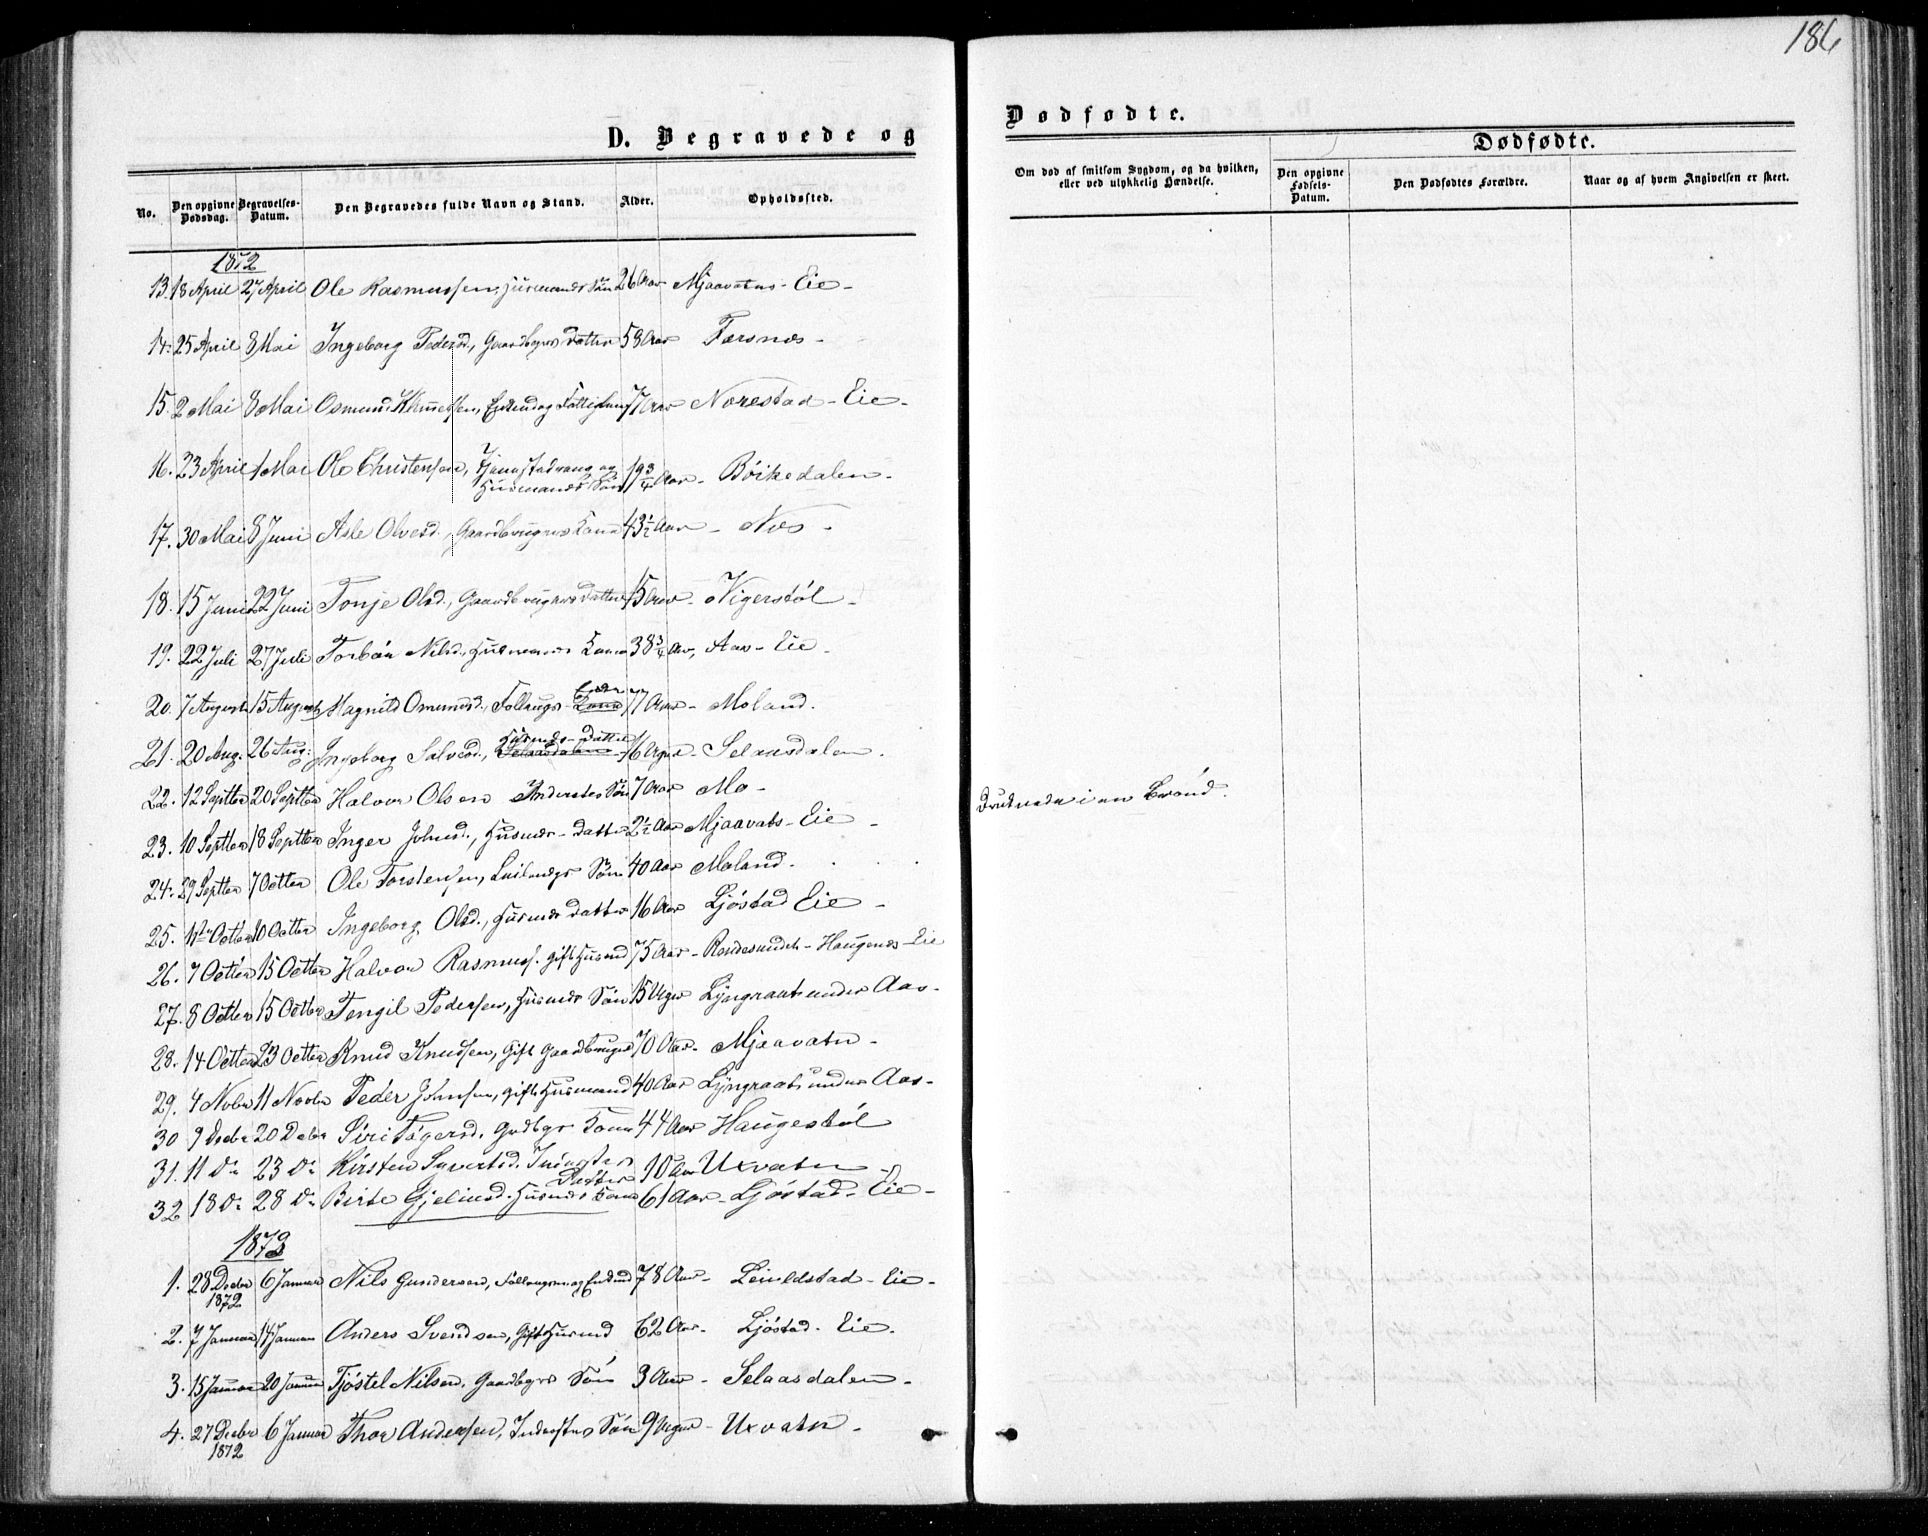 186
D. Begravede og
Dødfødte.
No.
Den opgivne Dødsdag.
Begravelses-Datum.
Den Begravedes fulde Navn og Stand.
Alder.
Opholdssted.
Om død af smitsom Sygdom, og da hvilken, eller ved ulykkelig Hændelse.
Dødfødte.
Den opgivne Fødsels-Datum.
Den Dødfødtes Forældre.
Naar og af hvem Angivelsen er skeet.
1872
13. 18 April 27 April Ole Rasmussen, Husmands Søn 26 Aar Mjaavatns - Eie -
14. 25 April 8 Mai Ingeborg Pedersd., Gaardbgrs Datter 58 Aar Færsnæs -
15. 2 Mai 8 Mai Osmund Ellingsen, Enkemand og Fattiglem 77 Aar Norestad - Eie -
16. 23 April 1 Mai Ole Christensen, Tjenestedreng og Husmands Søn 19 3/4 Aar - Böikedalen -
17. 30 Mai 8 Juni Asle Olvesd., Gaardbrugers Kone 43 1/2 Aar - Næs -
18. 15 Juni 22 Juni Tonje Olsd., Gaardbrugers Datter 15 Aar - Vigerstöl -
19. 22 Juli 27 Juli Torbör Nilsd., Husmands Kone 38 3/4 Aar, Aas - Eie -
20. 7 August 15 August Magnild Osmunds., Follaugs - Enke 77 Aar - Moland.
21. 20 Aug. 26 Aug: Ingeborg Salvesd., Husmds - Datter 16 Uger - Selaasdalen.
22. 12 Septter 20 Septter Halvor Olsen Inderstes Søn 7 Aar - Mo -
Druknede i en Brönd.
23. 10 Septter 18 Septter Inger Johnsd., Husmds - Datter 2 1/2 Aar Mjaavats - Eie -
24. 29 Septter 7 Octter Ole Torstensen, Leilændgs Søn 40 Aar Moland.
25. 1ste Octber 10 Octter Ingeborg Olsd., Husmds Datter 16 Aar Ljöstad Eie -
26. 7 Octber 15 Octter Halvor Rasmuss. gift Husmd 75 Aar - Randesundet - Haugenes - Eie
27. 8 Octter 15 Octter Tengil Pedersen, Husmds Søn 15 Uger Lÿngraats under Aas -
28. 14 Octter 23 Octter Knud Knudsen, Gift Gaardbruger 70 Aar - Mjaavatn -
29. 4 Novbr 11 Novbr Peder Johnsen, gift Husmand 40 Aar Lÿngraats under Aas -
30 9 Decbr 20 Debr Siri Tögersd. Grdbgr Kone 44 Aar Haugestöl
31. 11 Dº 23 Dº Kirsten Syvertsd. Inderstes Datter 10 Aar Uxvatn -
32 18 Dº 28 Dº Birte Gjeliusd. Husmds Kone 61 Aar - Ljöstad - Eie -
1873
1. 28 Decbr 1872 6 Januar Nils Gundersen, Follaugsm. og Enkemd 78 Aar - Leiuldstad - Eie -
2. 7 Januar 14 Januar Anders Svendsen, Gift Husmd 62 Aar - Ljöstad - Eie.
3. 15 Januar 20 Januar Tjöstel Nilsen, Gaardbgrs Søn 3 Aar - Selaasdalen -
4. 27 Decbr 1872 6 Januar Thor Andersen, Inderstes Søn 9 Uger - Uxvatn -